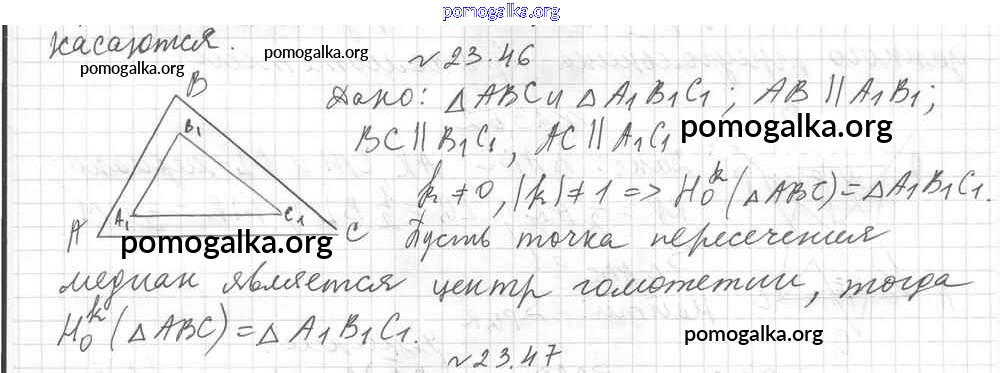 pomogalka.org
касаются.
pomogalka.org
pomogalka.org
№23.46
B
B1
A
A1
C1
C
pomogalka.org
Дано: △ABC и △A1B1C1; AB ∥ A1B1;
BC ∥ B1C1, AC ∥ A1C1
pomogalka.org
k ≠ 0, |k| ≠ 1 => H₀ᵏ(△ABC) = △A1B1C1.
Пусть точка пересечения
медиан является центр гомотетии, тогда
H₀ᵏ(△ABC) = △A1B1C1.
pomogalka.org
№23.47